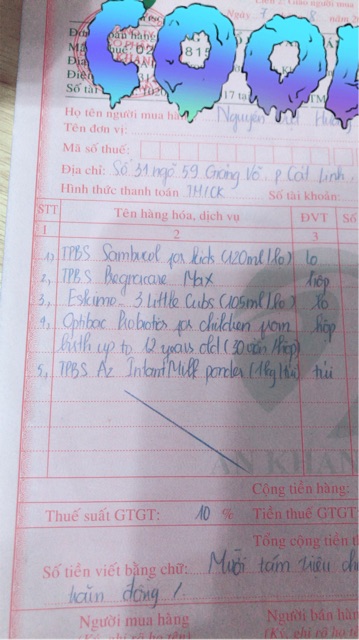 COOL
Ngày 7 8
Đơn bán hàng:
8815
Địa
Điện
Số tài
Họ tên người mua hà Nguyễn
Tên đơn vị:
Mã số thuế:
Địa chỉ: Số 31 ngõ 59 Giảng Võ. P Cát Linh,
Hình thức thanh toán TM/CK Số tài khoản:
STT Tên hàng hóa, dịch vụ ĐVT Số
1 2 3
1, TPBS Sambucol for kids (120ml/lọ) lọ
2, TPBS Begrucare Max hộp
3, Eskimo - 3 Little Cubs (105ml/lọ) lọ
4, Optibac Probotics for children hộp
birth up to 12 years old (30 /hộp)
5, TPBS Az Infant Milk powder (1kg/túi) túi
AN KHAN
Cộng tiền hàng:
Thuế suất GTGT: 10 % Tiền thuế GTGT
Tổng cộng tiền t
Số tiền viết bằng chữ: Mười tám triệu ch
đồng /.
Người mua hàng Người bán hàn